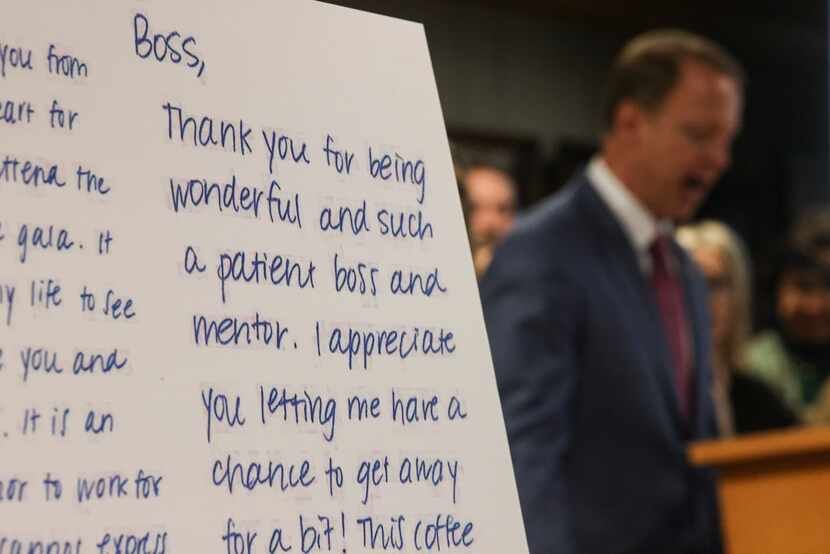 you from
for
the
gala. It
life to see
you and
. It is an
to work for
express
Boss,
Thank you for being
wonderful and such
a patient boss and
mentor. I appreciate
you letting me have a
chance to get away
for a bit! This coffee